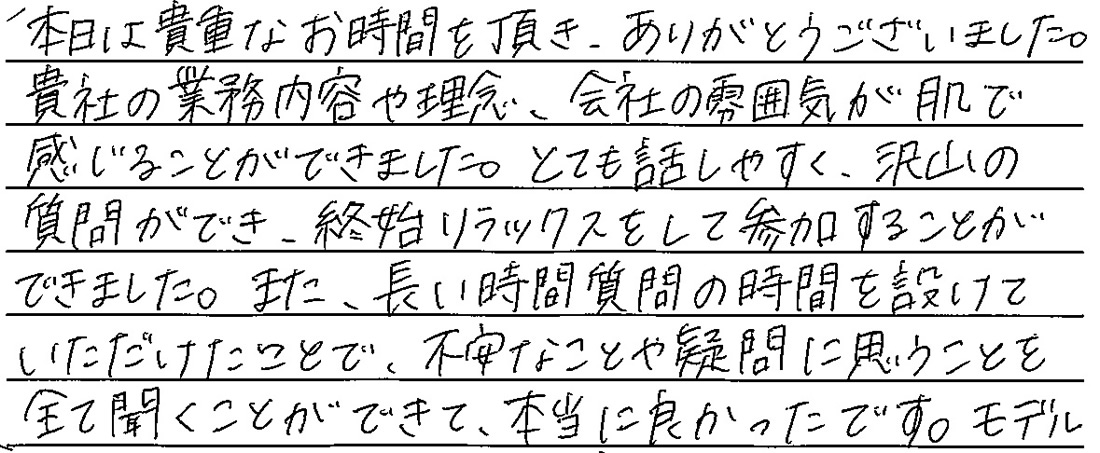 本日は貴重なお時間を頂き、ありがとうございました。
貴社の業務内容や理念、会社の雰囲気が肌で
感じることができました。とても話しやすく、沢山の
質問ができ、終始リラックスをして参加することが
できました。また、長い時間質問の時間を設けて
いただけたことで、不安なことや疑問に思うことを
全て聞くことができて、本当に良かったです。モデル